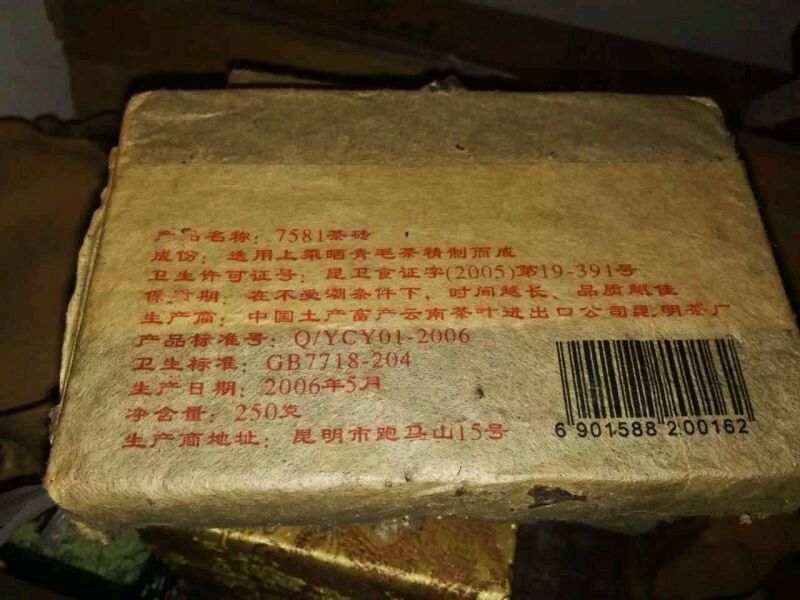 产品名称：7581茶砖
成份：选用上乘晒青毛茶精制而成
卫生许可证号：昆卫食证字(2005)第19-391号
保质期：在不受潮条件下，时间越长、品质越佳
生产商：中国土产畜产云南茶叶进出口公司昆明茶厂
产品标准号：Q/YCY01-2006
卫生标准：GB7718-204
生产日期：2006年5月
净含量：250克
生产商地址：昆明市跑马山15号
6 901588 200162